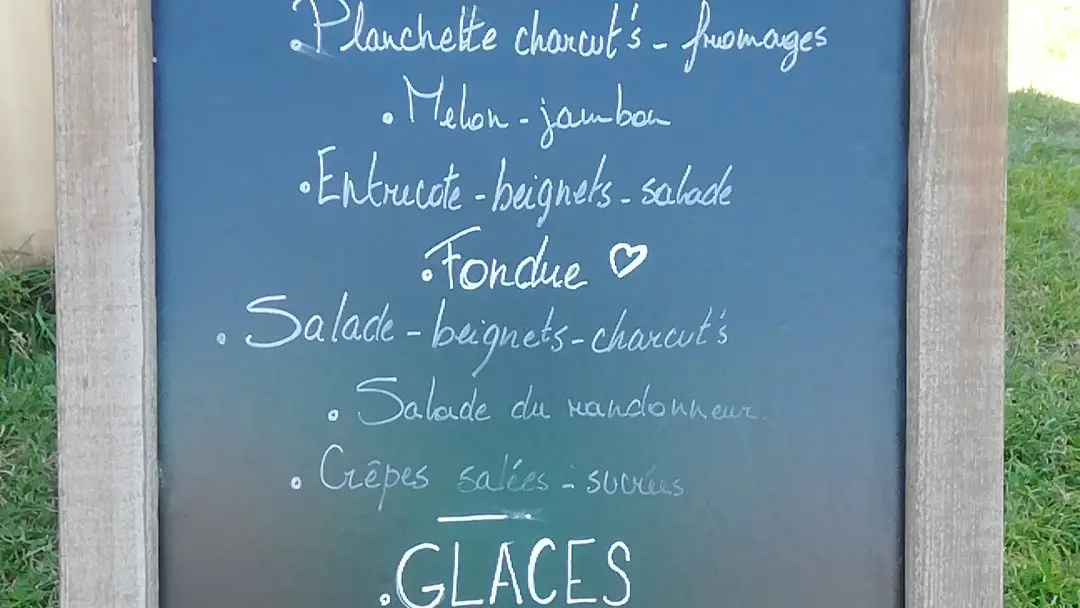 • Planchette charcut's - fromages
• Melon - jambon
• Entrecote - beignets - salade
• Fondue ♡
• Salade - beignets - charcut's
• Salade du randonneur.
• Crêpes salées - sucrées
• GLACES